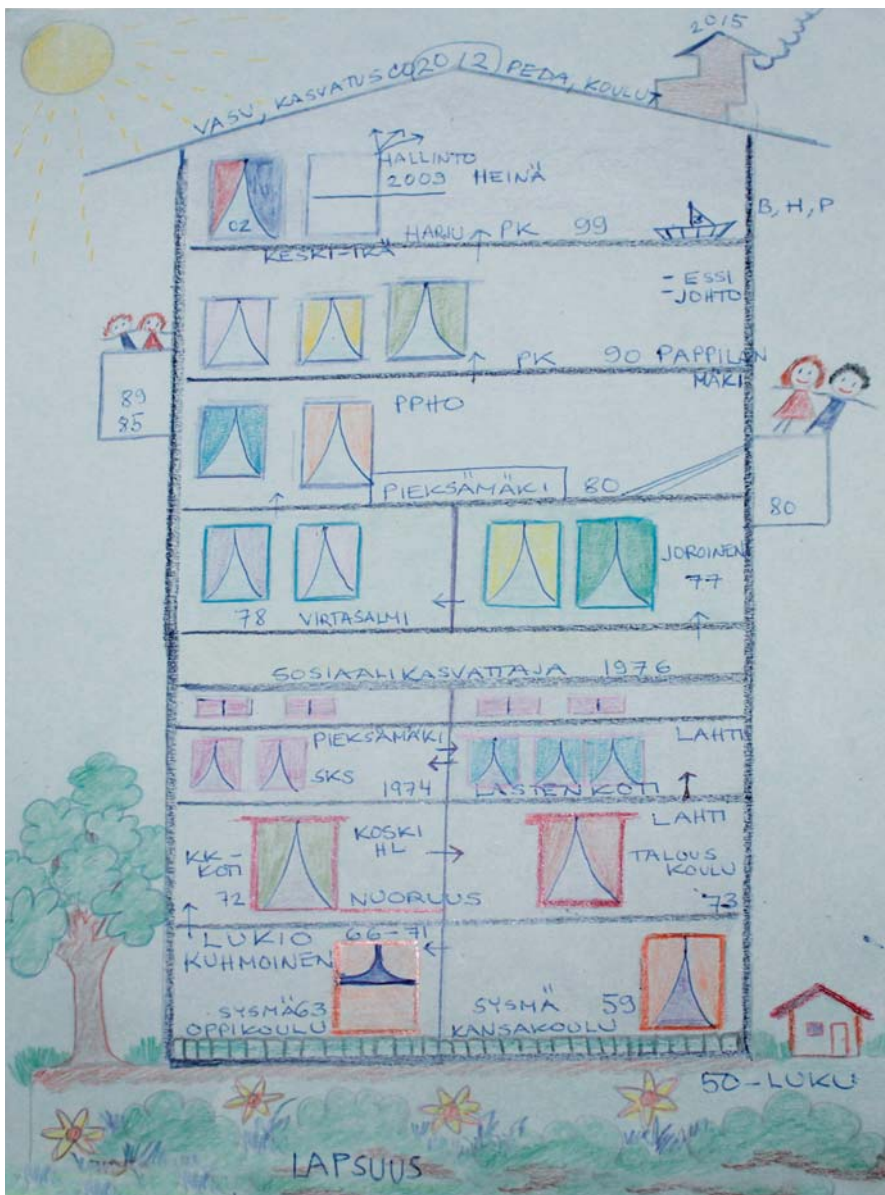 2015
VASU, KASVATUS
2012
PEDA, KOULUT
HALLINTO
2009 HEINÄ
02
HARJU PK 99
B, H, P
KESKI-IKÄ
- ESSI
- JOHTO
PK 90 PAPPILAN
MÄKI
89
85
PPHO
PIEKSÄMÄKI 80
80
JOROINEN
77
78 VIRTASALMI
SOSIAALIKASVATTAJA 1976
PIEKSÄMÄKI
SKS
1974
LAHTI
LASTEN KOTI
KK-
KOTI
72
KOSKI
HL
NUORUUS
LAHTI
TALOUS
KOULU
73
LUKIO 66-71
KUHMOINEN
SYSMÄ 63
OPPIKOULU
SYSMÄ 59
KANSAKOULU
50-LUKU
LAPSUUS